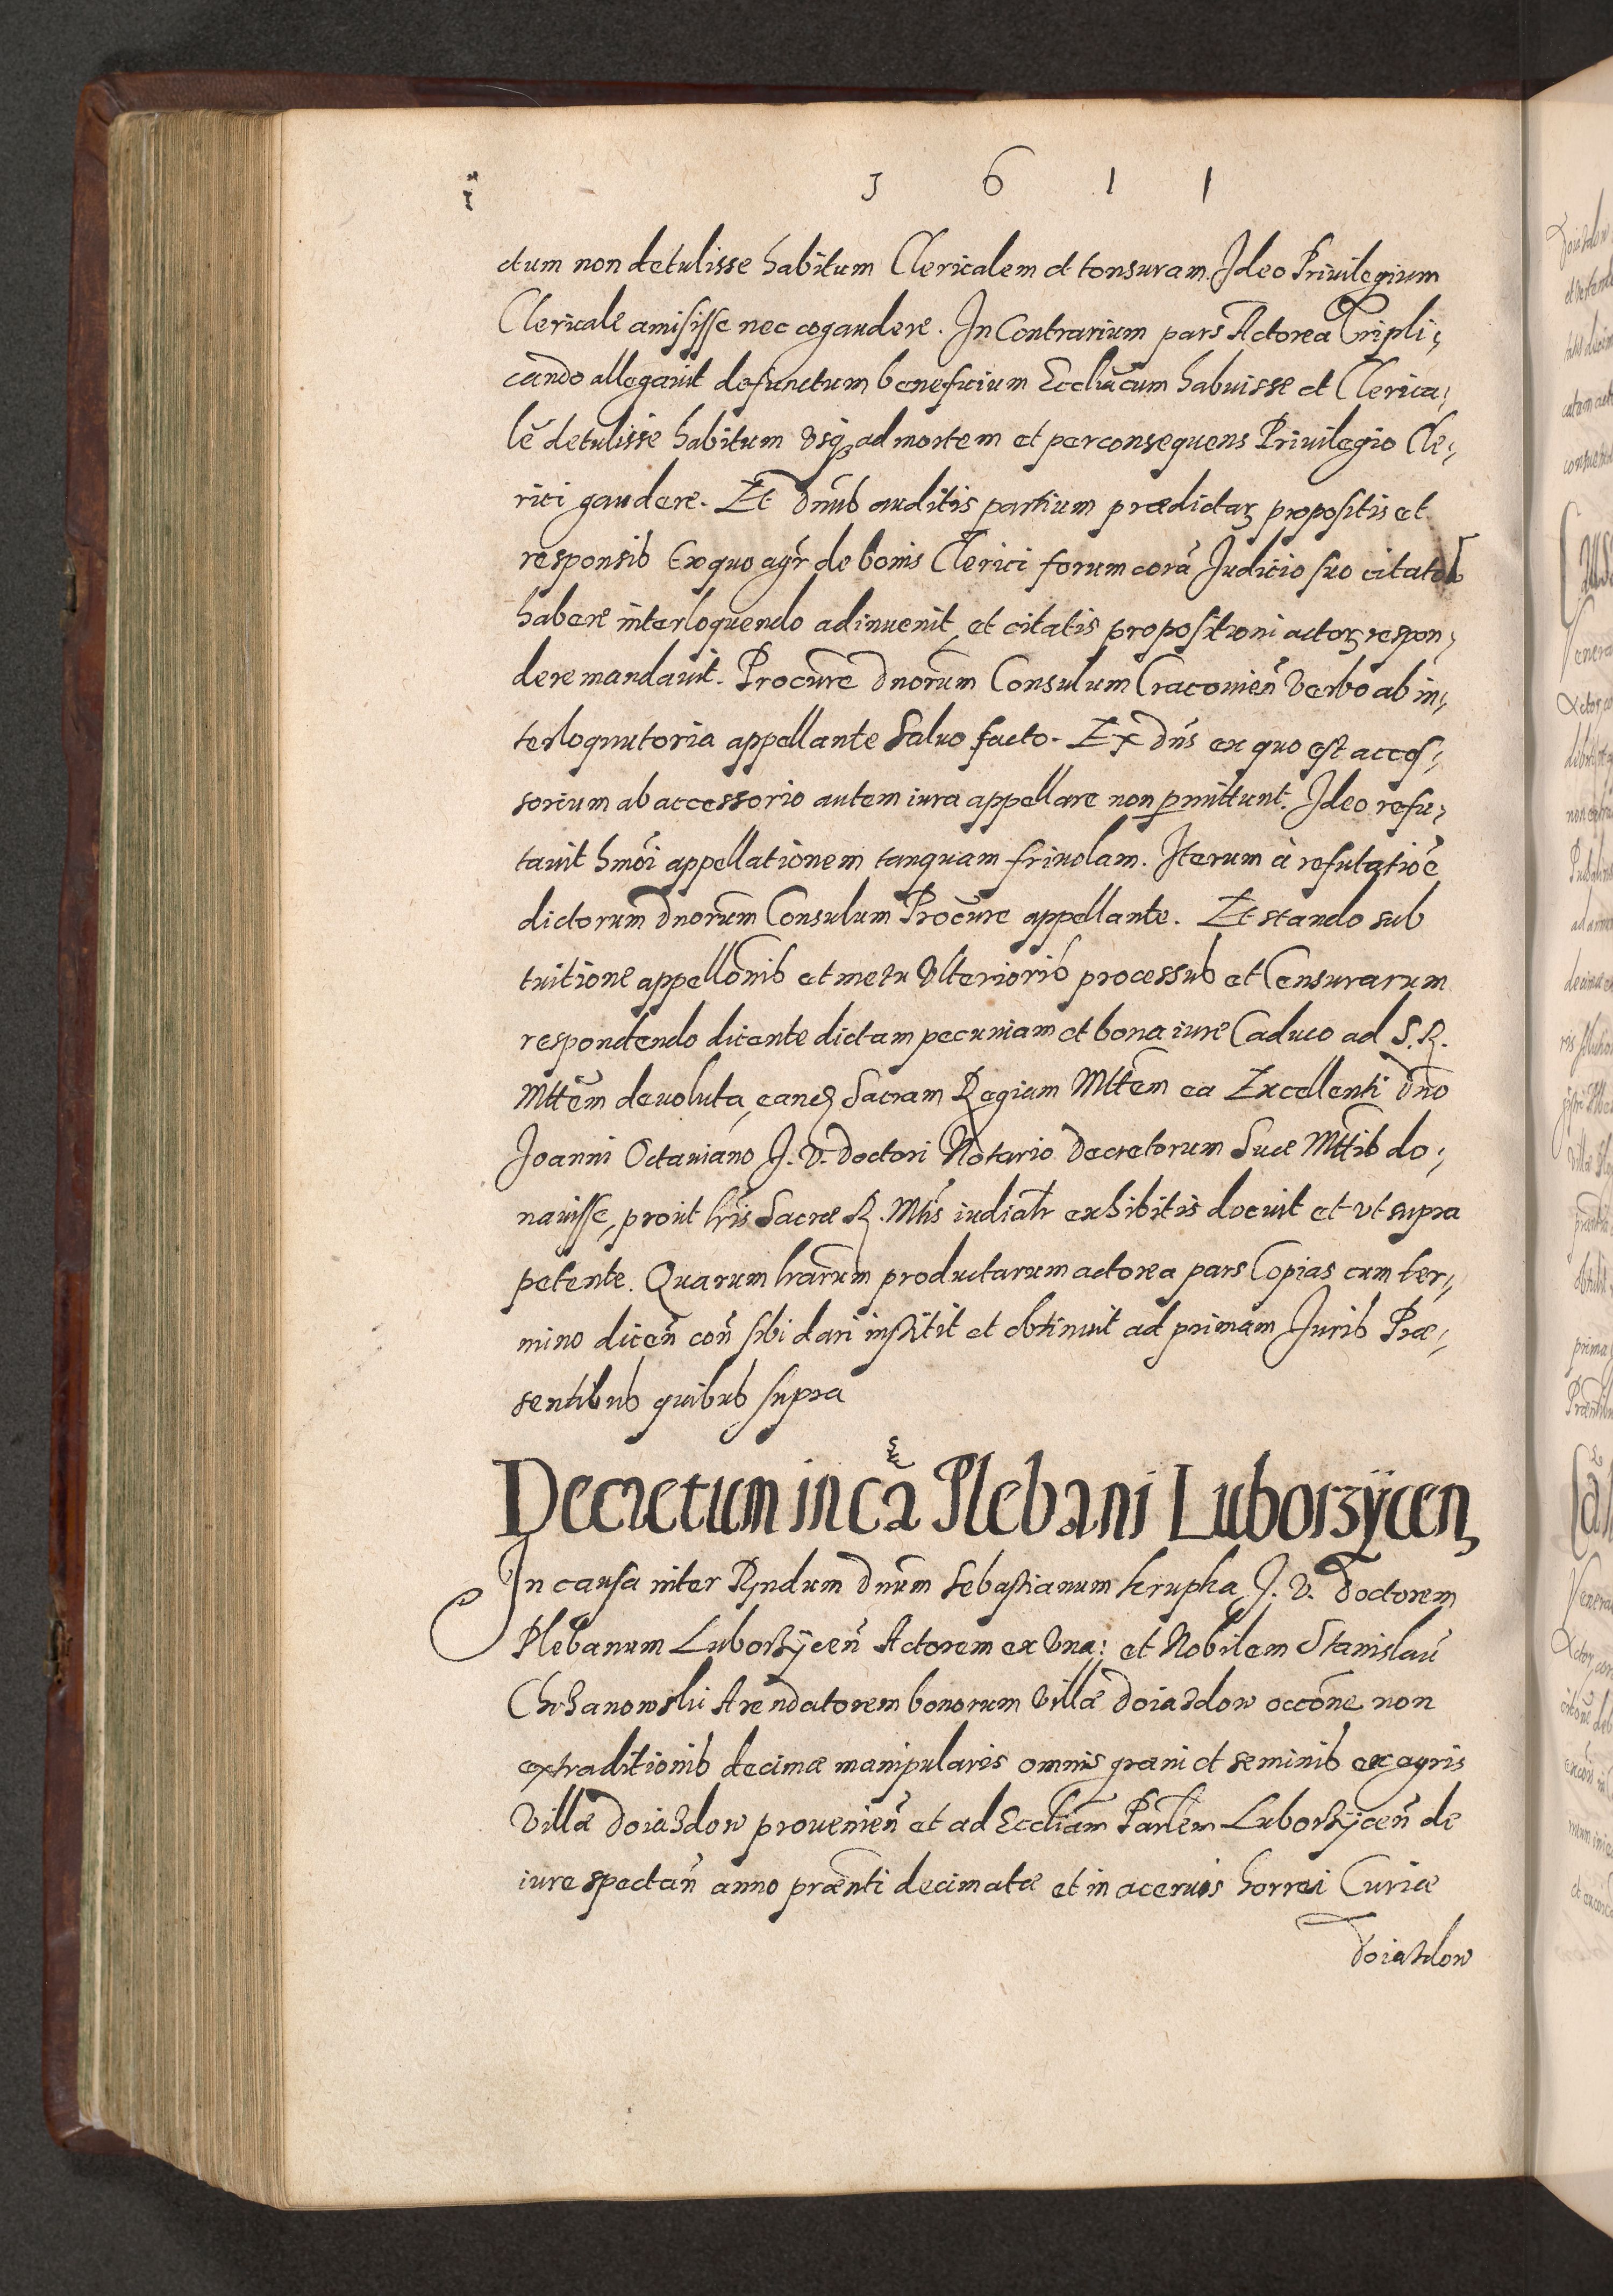 3 6 1 1
ctum non detulisse habitum Clericalem et tonsuram. Ideo Priuilegium
Clericale amisisse nec cogaudere. In Contrarium pars Actorea Tripli;
cando allegauit defunctum beneficium Eccliacum habuisse et Clerica;
lē detulisse habitum vsq3 ad mortem et per consequens Priuilegio Cle;
rici gaudere. Et Dnus auditis partium prædictar propositis et
responsis Ex quo agr̄ de bonis Clerici forum corā Iudicio suo citatos
habere interloquendo adinuenit, et citatis propositioni actor respon;
dere mandauit. Procūre Dnorum Consulum Cracouien̄ Verbo ab in;
terloqutoria appellante Saluo facto. Ex Dns ex quo est acces;
sorium ab accessorio autem iura appellare non pmittunt. Ideo refu;
tauit hmōi appellationem tanquam friuolam. Iterum à refutatiōe
dictorum Dnorum Consulum Procūre appellante. Et stando sub
tuitione appellōnis et metu Vlterioris processus et Censurarum
respondendo dicente dictam pecuniam et bona iure Caduco ad S. R.
Mttēm deuoluta, eandē Sacram Regiam Mttēm ea Excellenti Dno
Joanni Octauiano J. V. Doctori Notario Decretorum Suæ Mttis do;
nauisse, prout lr̄is Sacræ R. Mtis iudialr̄ exhibitis docuit et vt supra
petente. Quarum lrarum productarum actorea pars Copias cum ter;
mino dicen̄ con̄ sibi dari institit et obtinuit ad primam Juris Præ;
sentibus quibus supra
Decretum in cā Plebani Luborzÿcen
In causa inter Rndum Dnūm Sebastianum Krupka J. V. Doctorem
Plebanum Luborzÿcen̄ Actorem ex Vna; et Nobilem Stanislaū
Chrzanowskii Arendatorem bonorum Villæ Doiazdow occōne non
extraditionis decimæ manipularis omnis grani et seminis ex agris
Villæ Doiazdow prouenien̄ et ad Eccliam Parlēm Luborzÿcen̄ de
iure spectan̄ anno præn̄ti decimatæ et in aceruos horrei Curiæ
Doiazdow